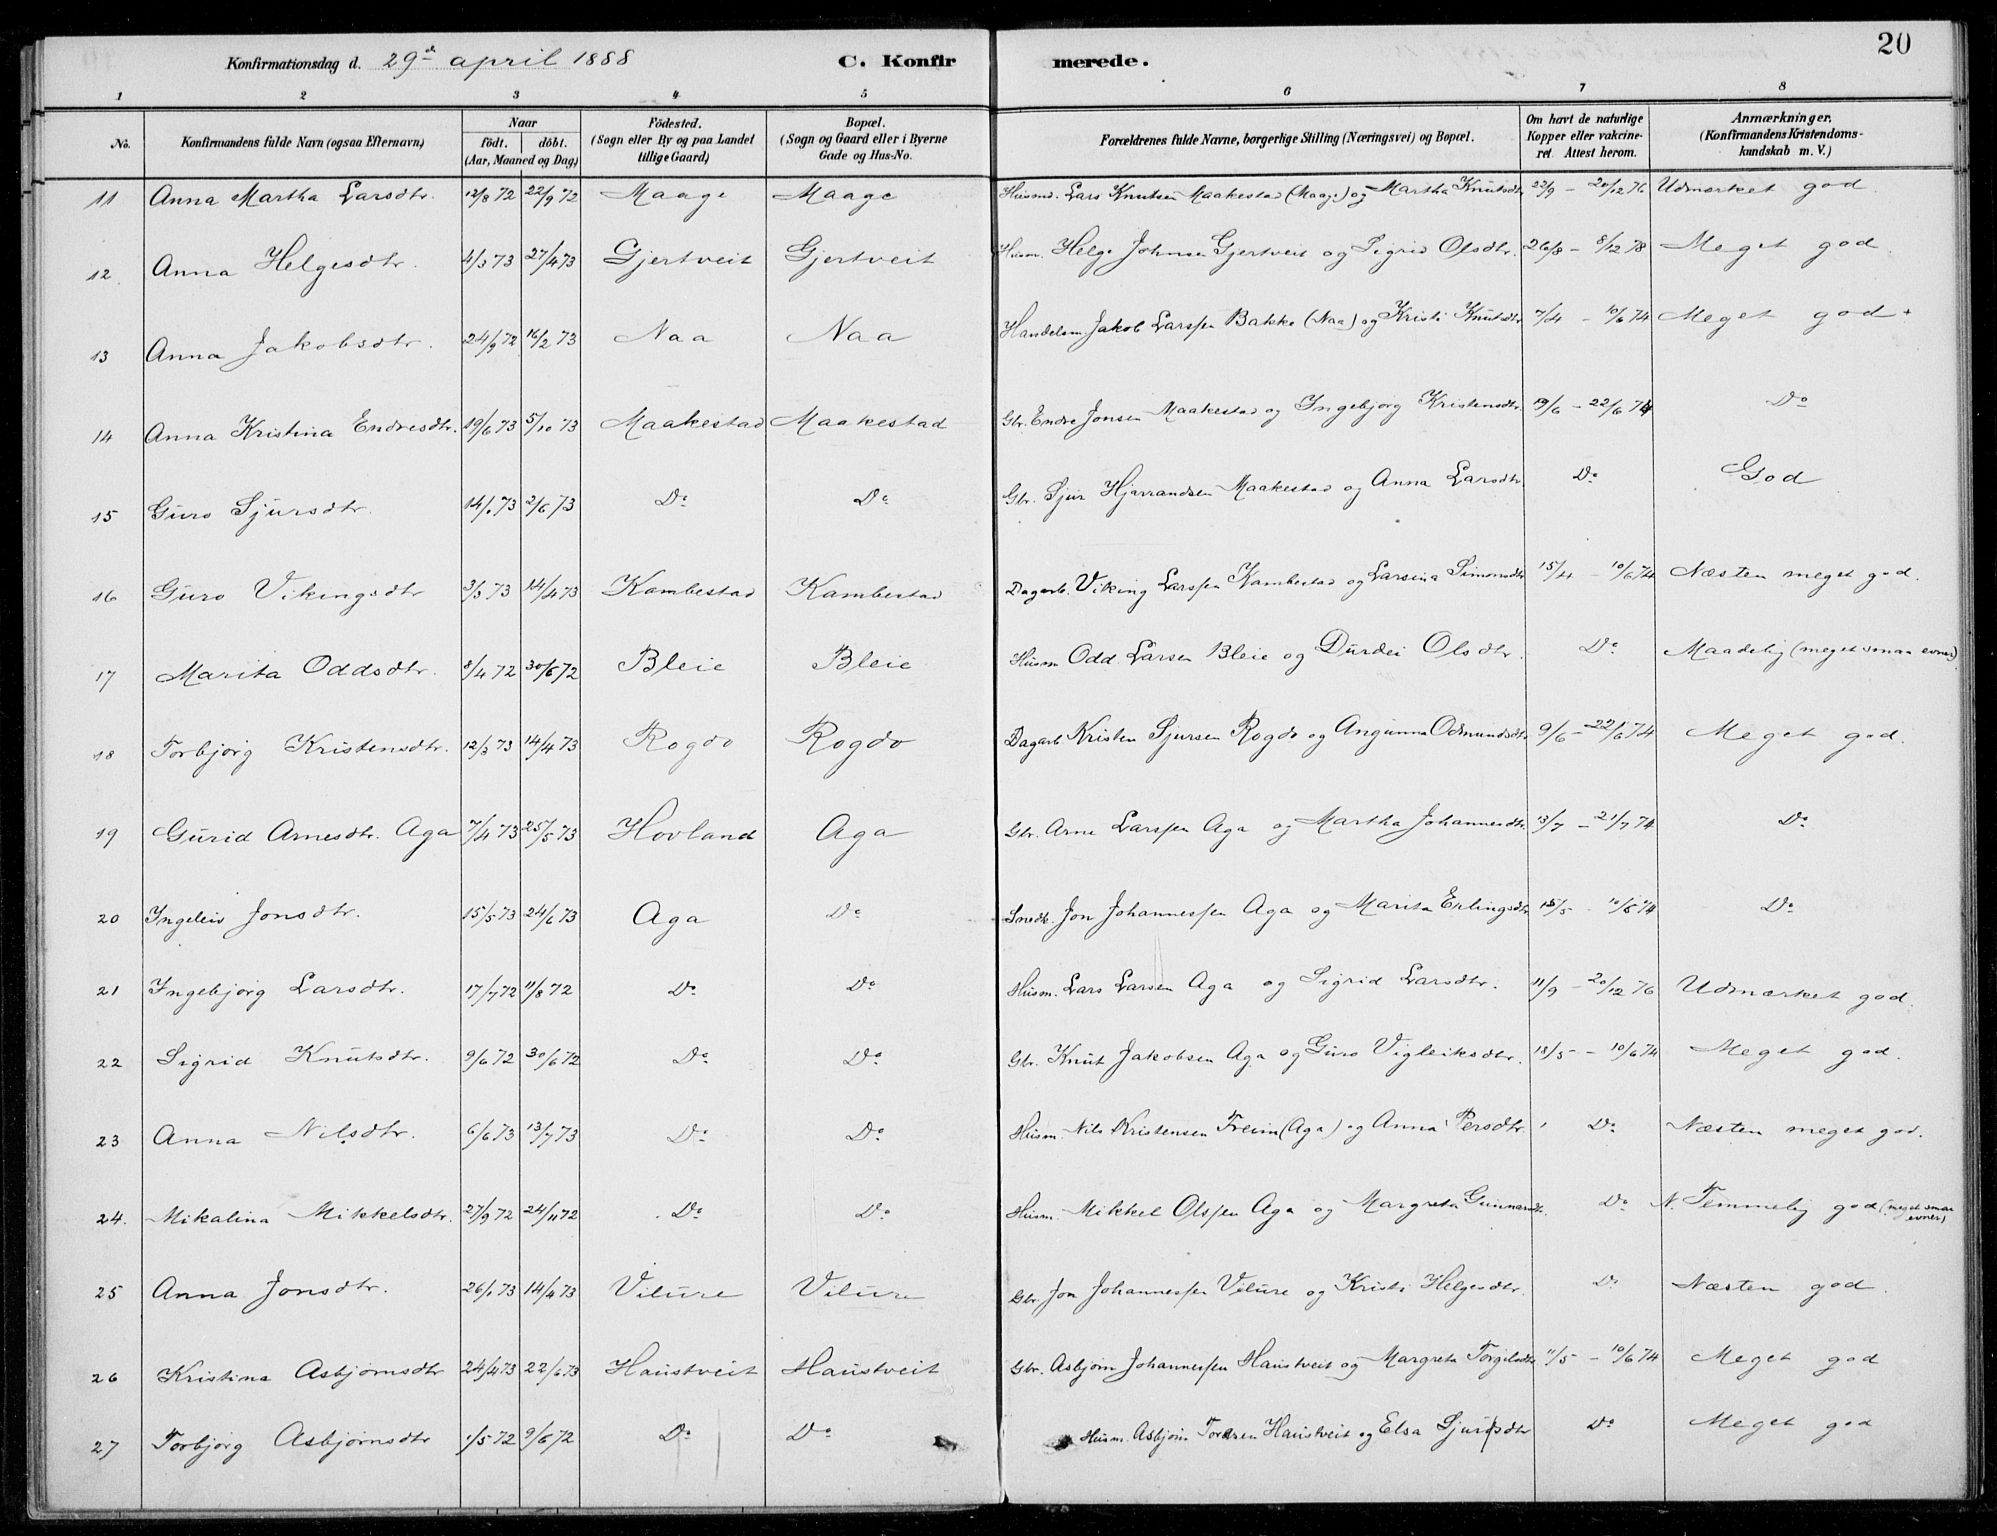 Konfirmationsdag d. 29de april 1888 C. Konfirmerede. 20
1 2 3 4 5 6 7 8
No. Konfirmandens fulde Navn (ogsaa Efternavn) Naar födt. döbt. (Aar, Maaned og Dag) Födested. (Sogn eller By og paa Landet tillige Gaard) Bopæl. (Sogn og Gaard eller i Byerne Gade og Hus-No. Forældrenes fulde Navne, borgerlige Stilling (Næringsvei) og Bopæl. Om havt de naturlige Kopper eller vakcineret. Attest herom. Anmærkninger. (Konfirmandens Kristendomskundskab m. V.)
11 Anna Martha Larsdtr. 12/8 72 22/9 72 Maage Maage Husmd. Lars Knutsen Maakestad (Maage) og Martha Knutsdtr 22/9 - 20/12 76 Udmærket god.
12 Anna Helgesdtr. 4/3 73 27/4 73 Gjertveit Gjertveit Husm. Helge Johnsen Gjertveit og Sigrid Olsdtr. 26/8 - 8/12 78 Meget god
13 Anna Jakobsdtr. 24/9 72 16/2 73 Naa Naa Handelsm Jakob Larssen Bakke (Naa) og Kristi Knutsdtr 7/4 - 10/6 74 Meget god +
14 Anna Kristina Endresdtr. 19/6 73 5/10 73 Maakestad Maakestad Gbr. Endre Jonsen Maakestad og Ingebjørg Kristensdtr. 13/6 - 22/6 74 Do
15 Guro Sjursdtr. 14/1 73 2/6 73 Do Do Gbr. Sjur Hjarrandsen Maakestad og Anna Larsdtr Do God
16 Guro Vikingsdtr 3/3 73 14/4 73 Kambestad Kambestad Dagarb. Viking Larssen Kambestad og Larsina Simonsdtr 15/4 - 10/6 74 Næsten meget god.
17 Marita Oddsdtr. 8/4 72 30/6 72 Bleie Bleie Husm Odd Larsen Bleie og Durdei Olsdtr. Do Maadelig (meget smaa evner)
18 Torbjørg Kristensdtr. 12/3 73 14/4 73 Rogdo Rogdo Dagarb. Kristen Sjursen Rogdo og Angunna Odmundsdtr 9/6 - 22/6 74 Meget god.
19 Gurid Arnesdtr. Aga 7/4 73 25/5 73 Hovland Aga Gbr. Arne Larssen Aga og Martha Johannesdtr 13/7 - 21/7 74 Do
20 Ingeleiv Jonsdtr. 15/5 73 24/6 73 Aga Do Jon Johannessen Aga og Marita Erlingsdtr 15/5 - 10/6 74 Do
21 Ingebjørg Larsdtr. 17/7 72 11/8 72 Do Do Husm. Lars Larsen Aga og Sigrid Larsdtr. 11/9 - 20/12 76 Udmærket god.
22 Sigrid Knutsdtr. 9/6 72 30/6 72 Do Do Gbr. Knut Jakobsen Aga og Guro Vigleiksdtr. 18/5 - 10/6 74 Meget god.
23 Anna Nilsdtr. 6/6 73 13/7 73 Do Do Husm. Nils Kristensen Freim (Aga) og Anna Persdtr. Do Næsten meget god.
24. Mikalina Mikkelsdtr. 27/9 72 24/11 72 Do Do Husm. Mikkel Olssen Aga og Margreta Gunnarsdt. Do N. Temmelig god (meget smaa evner)
25 Anna Jonsdtr. 26/1 73 14/4 73 Vilure Vilure Gbr. Jon Johannessen Vilure og Kristi Helgesdtr. Do Næsten god.
26 Kristina Asbjørnsdtr 24/4 73 22/6 73 Haustveit Haustveit Gbr. Asbjørn Johannessen Haustveit og Margreta Torgilsdtr. 11/5 - 10/6 74 Meget god
27 Torbjørg Asbjørnsdtr 1/5 72 9/6 72 Do Do Husm. Asbjørn Tordsen Haustveit og Elsa Sjursdtr Do Meget god